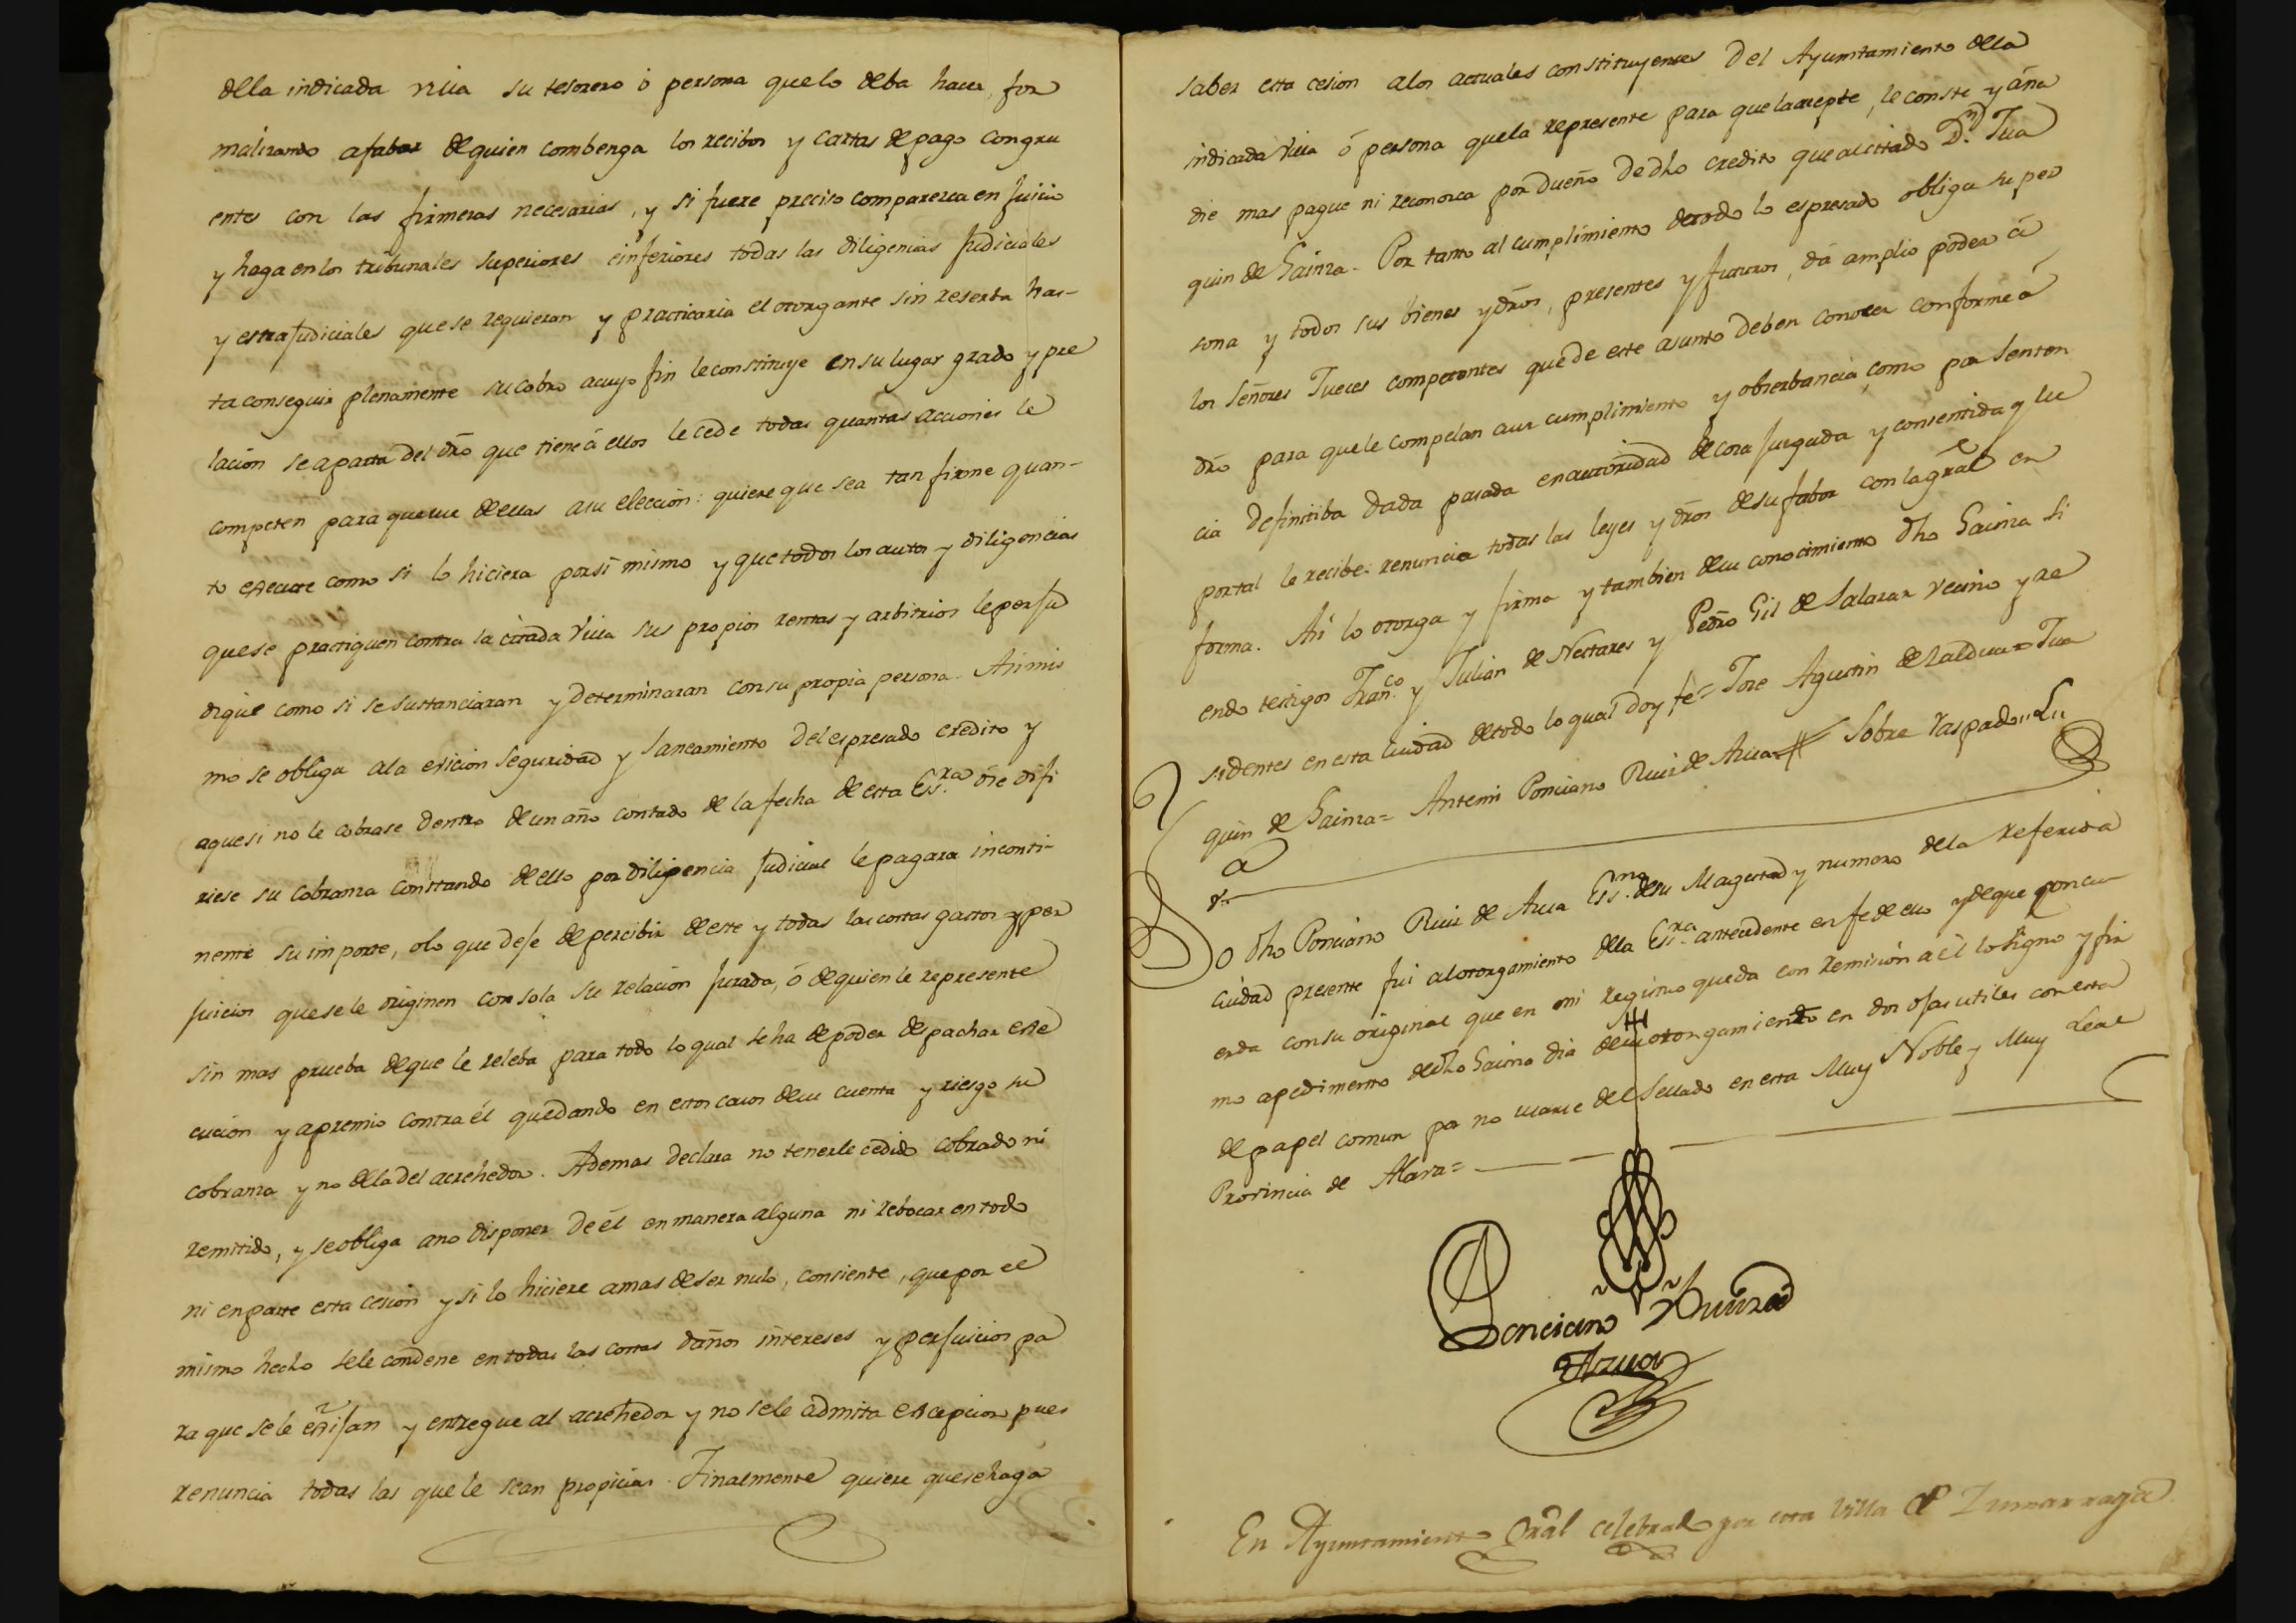 della indicada villa su tesorero ó persona quelo deba hacer, for
malizando afabor dequien combenga los recibos y cartas depago congru
entes con las firmezas necesarias, y si fuere preciso comparezca en juicio
y haga enlos tribunales superiores einferiores todas las diligencias judiciales
y estrajudiciales quese requieran y practicaria el otorgante sin reserba has-
ta conseguir plenamente sucobro acuyo fin leconstituye ensu lugar grado y pre
lacion seaparta del dro que tiene á ellos lecede todas quantas acciones le
competen para queuse deellas asu eleccion: quiere que sea tan firme quan-
to execute como si lo hiciera porsi mismo y quetodos los autos y diligencias
quese practiquen contra la citada Villa sus propios rentas y arbitrios leperju
dique como si se sustanciaran y determinaran consu propia persona. Asimis
mo se obliga ala evicion seguridad y saneamiento del espresado credito y
aquesi no le cobrase dentro deun año contado de la fecha de esta Ess.ra óse difi
riese su cobranza constando deello por diligencia judicial lepagara inconti-
nente su importe, olo que deje depercibir deeste y todas las costas gastos y per
juicios quesele originen con sola su relacion jurada, ó dequien le represente
sin mas prueba deque le releba para todo lo qual se ha depoder despachar ese
cucion y apremio contra él quedando en estos casos desu cuenta y riesgo su
cobranza y no della del acrehedor. Ademas declara no tenerle cedido cobrado ni
remitido, y seobliga ano disponer de él en manera alguna ni rebocar entodo
ni enparte esta cesion y si lo hiciere amas deser nulo, consiente, que por el
mismo hecho sele condene entodas las costas daños intereses y perjuicios pa
ra que se le exijan y entregue al acrehedor y no sele admita excepcion pues
renuncia todas las que le sean propicias. Finalmente quiere quesehaga
saber esta cesion alos actuales constituyentes del Ayuntamiento della
indicada Villa ó persona quela represente para quelaacepte, le conste y ána
die mas pague ni reconozca por dueño dedho credito que alcitado D.n Jua
quin de Sainza. Por tanto al cumplimiento detodo lo espresado obliga su per
sona y todos sus bienes ydros, presentes y futuros, dá amplio poder á
los Señores Jueces competentes quede este asunto deben conocer conforme á
dro para quele compelan asu cumplimiento y obserbancia como por senten
cia definitiba dada pasada enautoridad decosa juzgada y consentida q lu
portal le recibe: renuncia todas las leyes y dros desufabor con lagral en
forma. Asi lo otorga y firma y tambien desu conocimiento dho Sainza si
endo testigos Fran.co y Julian de Nectares y Pedro Gil de Salazar vecino y re
sidentes en esta Ciudad detodo lo qual doy fe= Jose Agustin de Zaldua= Jua
quin de Sainza= Antemi Ponciano Ruiz de Azua= Sobre raspado"L"
a
v.
Yo dho Ponciano Ruiz de Azua Ess.no desu Magestad y numero dela referida
Ciudad presente fui alotorgamiento della Ess.ra antecedente en fe de ello ydeque concu
erda consu original que en mi registro queda con remision aél lo signo y fir
mo apedimento dedho Sainza dia desu otorgamiento en dos ojas utiles conesta
depapel comun por no usarse del sellado en esta Muy Noble y Muy Leal
Provincia de Alava=
Ponciano Ruiz de
Azua
En Ayuntamiento Gral celebrado por esta Villa de Zumarraga